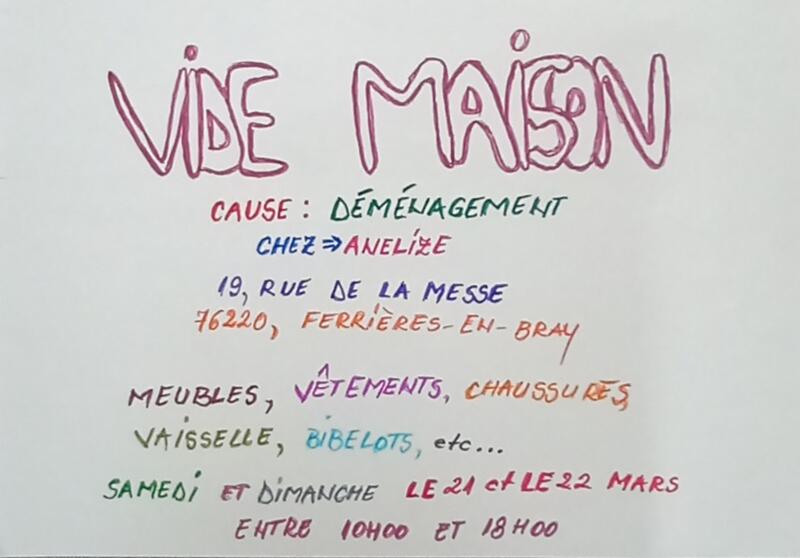 ViDE MAiSON
CAUSE : DÉMÉNAGEMENT
CHEZ ⇒ ANELIZE
19, RUE DE LA MESSE
76220, FERRIÈRES-EN-BRAY
MEUBLES, VÊTEMENTS, CHAUSSURES,
VAiSSELLE, BiBELOTS, etc...
SAMEDi ET DIMANCHE LE 21 et LE 22 MARS
ENTRE 10H00 ET 18H00